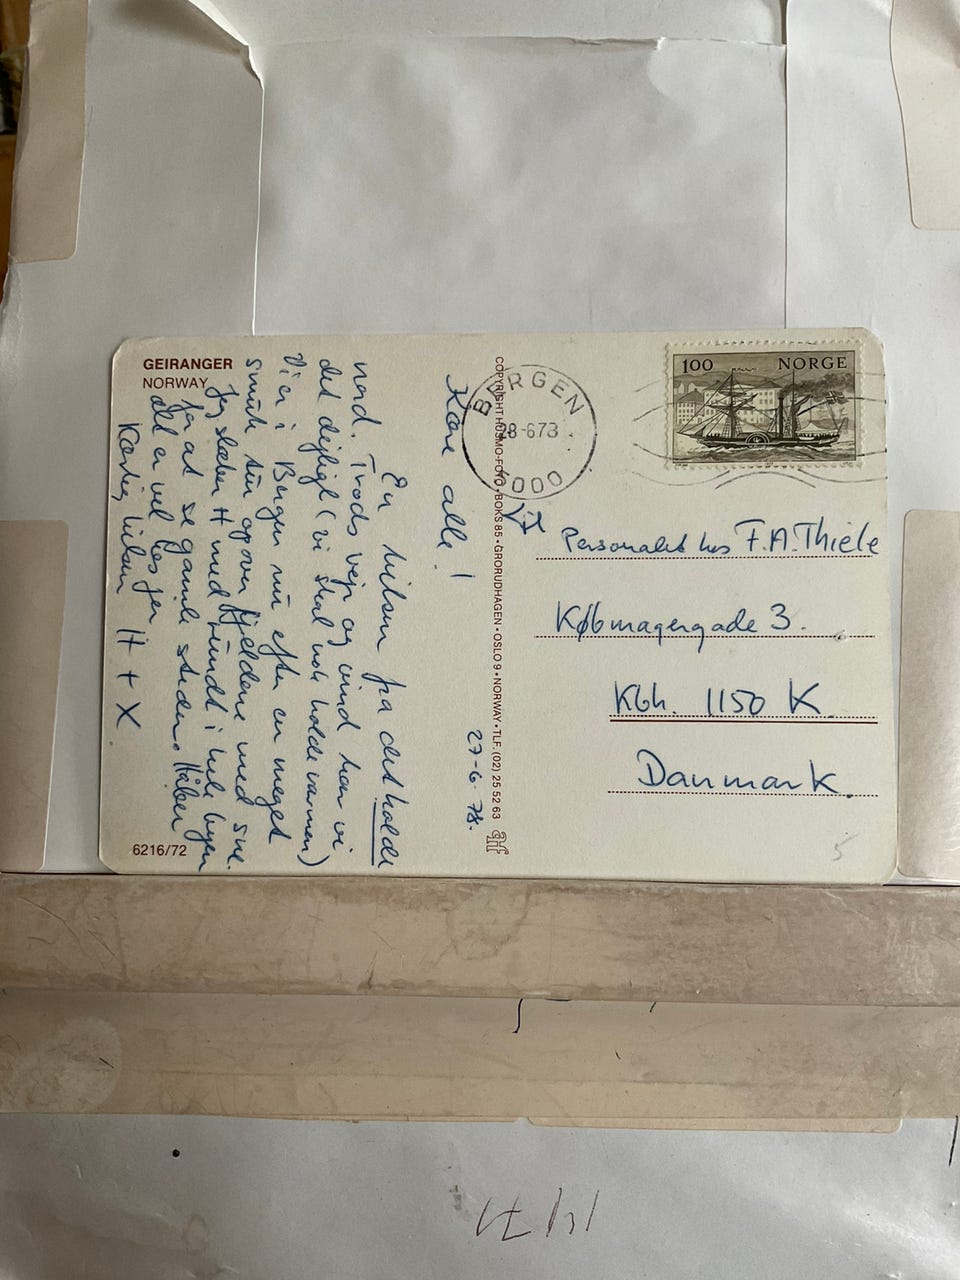 GEIRANGER
NORWAY
27-6-78.
Kære alle!
En hilsen fra det kolde
nord. Trods vejr og vind har vi
det dejligt (vi skal nok holde varmen)
Vi er i Bergen nu efter en meget
smuk tur op over fjeldene med sne.
Jeg slæber H med rundt i hele byen
for at se gamle steder. Håber
alt er vel hos jer
Kærlig hilsen H + X.
6216/72
COPYRIGHT HUSMO-FOTO • BOKS 85 • GRORUDHAGEN • OSLO 9 • NORWAY • TLF. (02) 25 52 63
BERGEN
28-6 78
5000
100 NORGE
Personalet hos F.A. Thiele
Købmagergade 3.
Kbh. 1150 K.
Danmark.
5